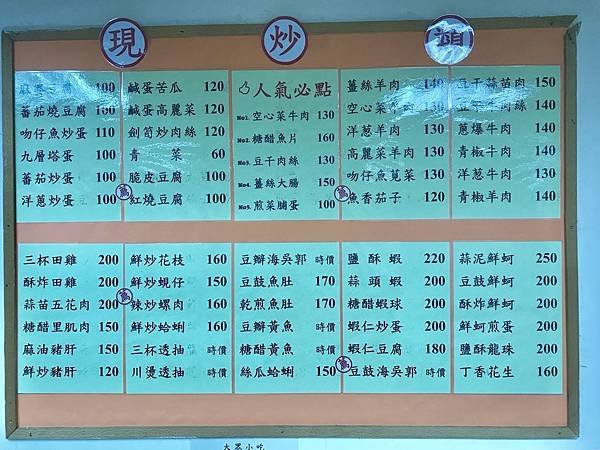 現 炒 類
麻婆豆腐 100
蕃茄燒豆腐 100
吻仔魚炒蛋 110
九層塔蛋 100
蕃茄炒蛋 100
洋蔥炒蛋 100
鹹蛋苦瓜 120
鹹蛋高麗菜 120
劍筍炒肉絲 120
青菜 60
脆皮豆腐 100
紅燒豆腐 100
人氣必點
No1. 空心菜牛肉 130
No2. 糖醋魚片 160
No3. 豆干肉絲 130
No4. 薑絲大腸 150
No5. 煎菜脯蛋 100
薑絲羊肉 140
空心菜羊肉 130
洋蔥羊肉 130
高麗菜羊肉 130
吻仔魚莧菜 130
魚香茄子 120
豆干蒜苗肉 150
豆干牛肉絲 140
蔥爆牛肉 140
青椒牛肉 140
洋蔥牛肉 140
青椒羊肉 140
三杯田雞 200
酥炸田雞 200
蒜苗五花肉 200
糖醋里肌肉 150
麻油豬肝 150
鮮炒豬肝 120
鮮炒花枝 160
鮮炒蜆仔 150
辣炒螺肉 160
鮮炒蛤蜊 160
三杯透抽 時價
川燙透抽 時價
豆瓣海吳郭 時價
豆鼓魚肚 170
乾煎魚肚 170
豆瓣黃魚 時價
糖醋黃魚 時價
絲瓜蛤蜊 150
鹽酥蝦 220
蒜頭蝦 200
糖醋蝦球 200
蝦仁炒蛋 200
蝦仁豆腐 180
豆鼓海吳郭 時價
蒜泥鮮蚵 250
豆鼓鮮蚵 200
酥炸鮮蚵 200
鮮蚵煎蛋 200
鹽酥龍珠 200
丁香花生 160
大眾小吃